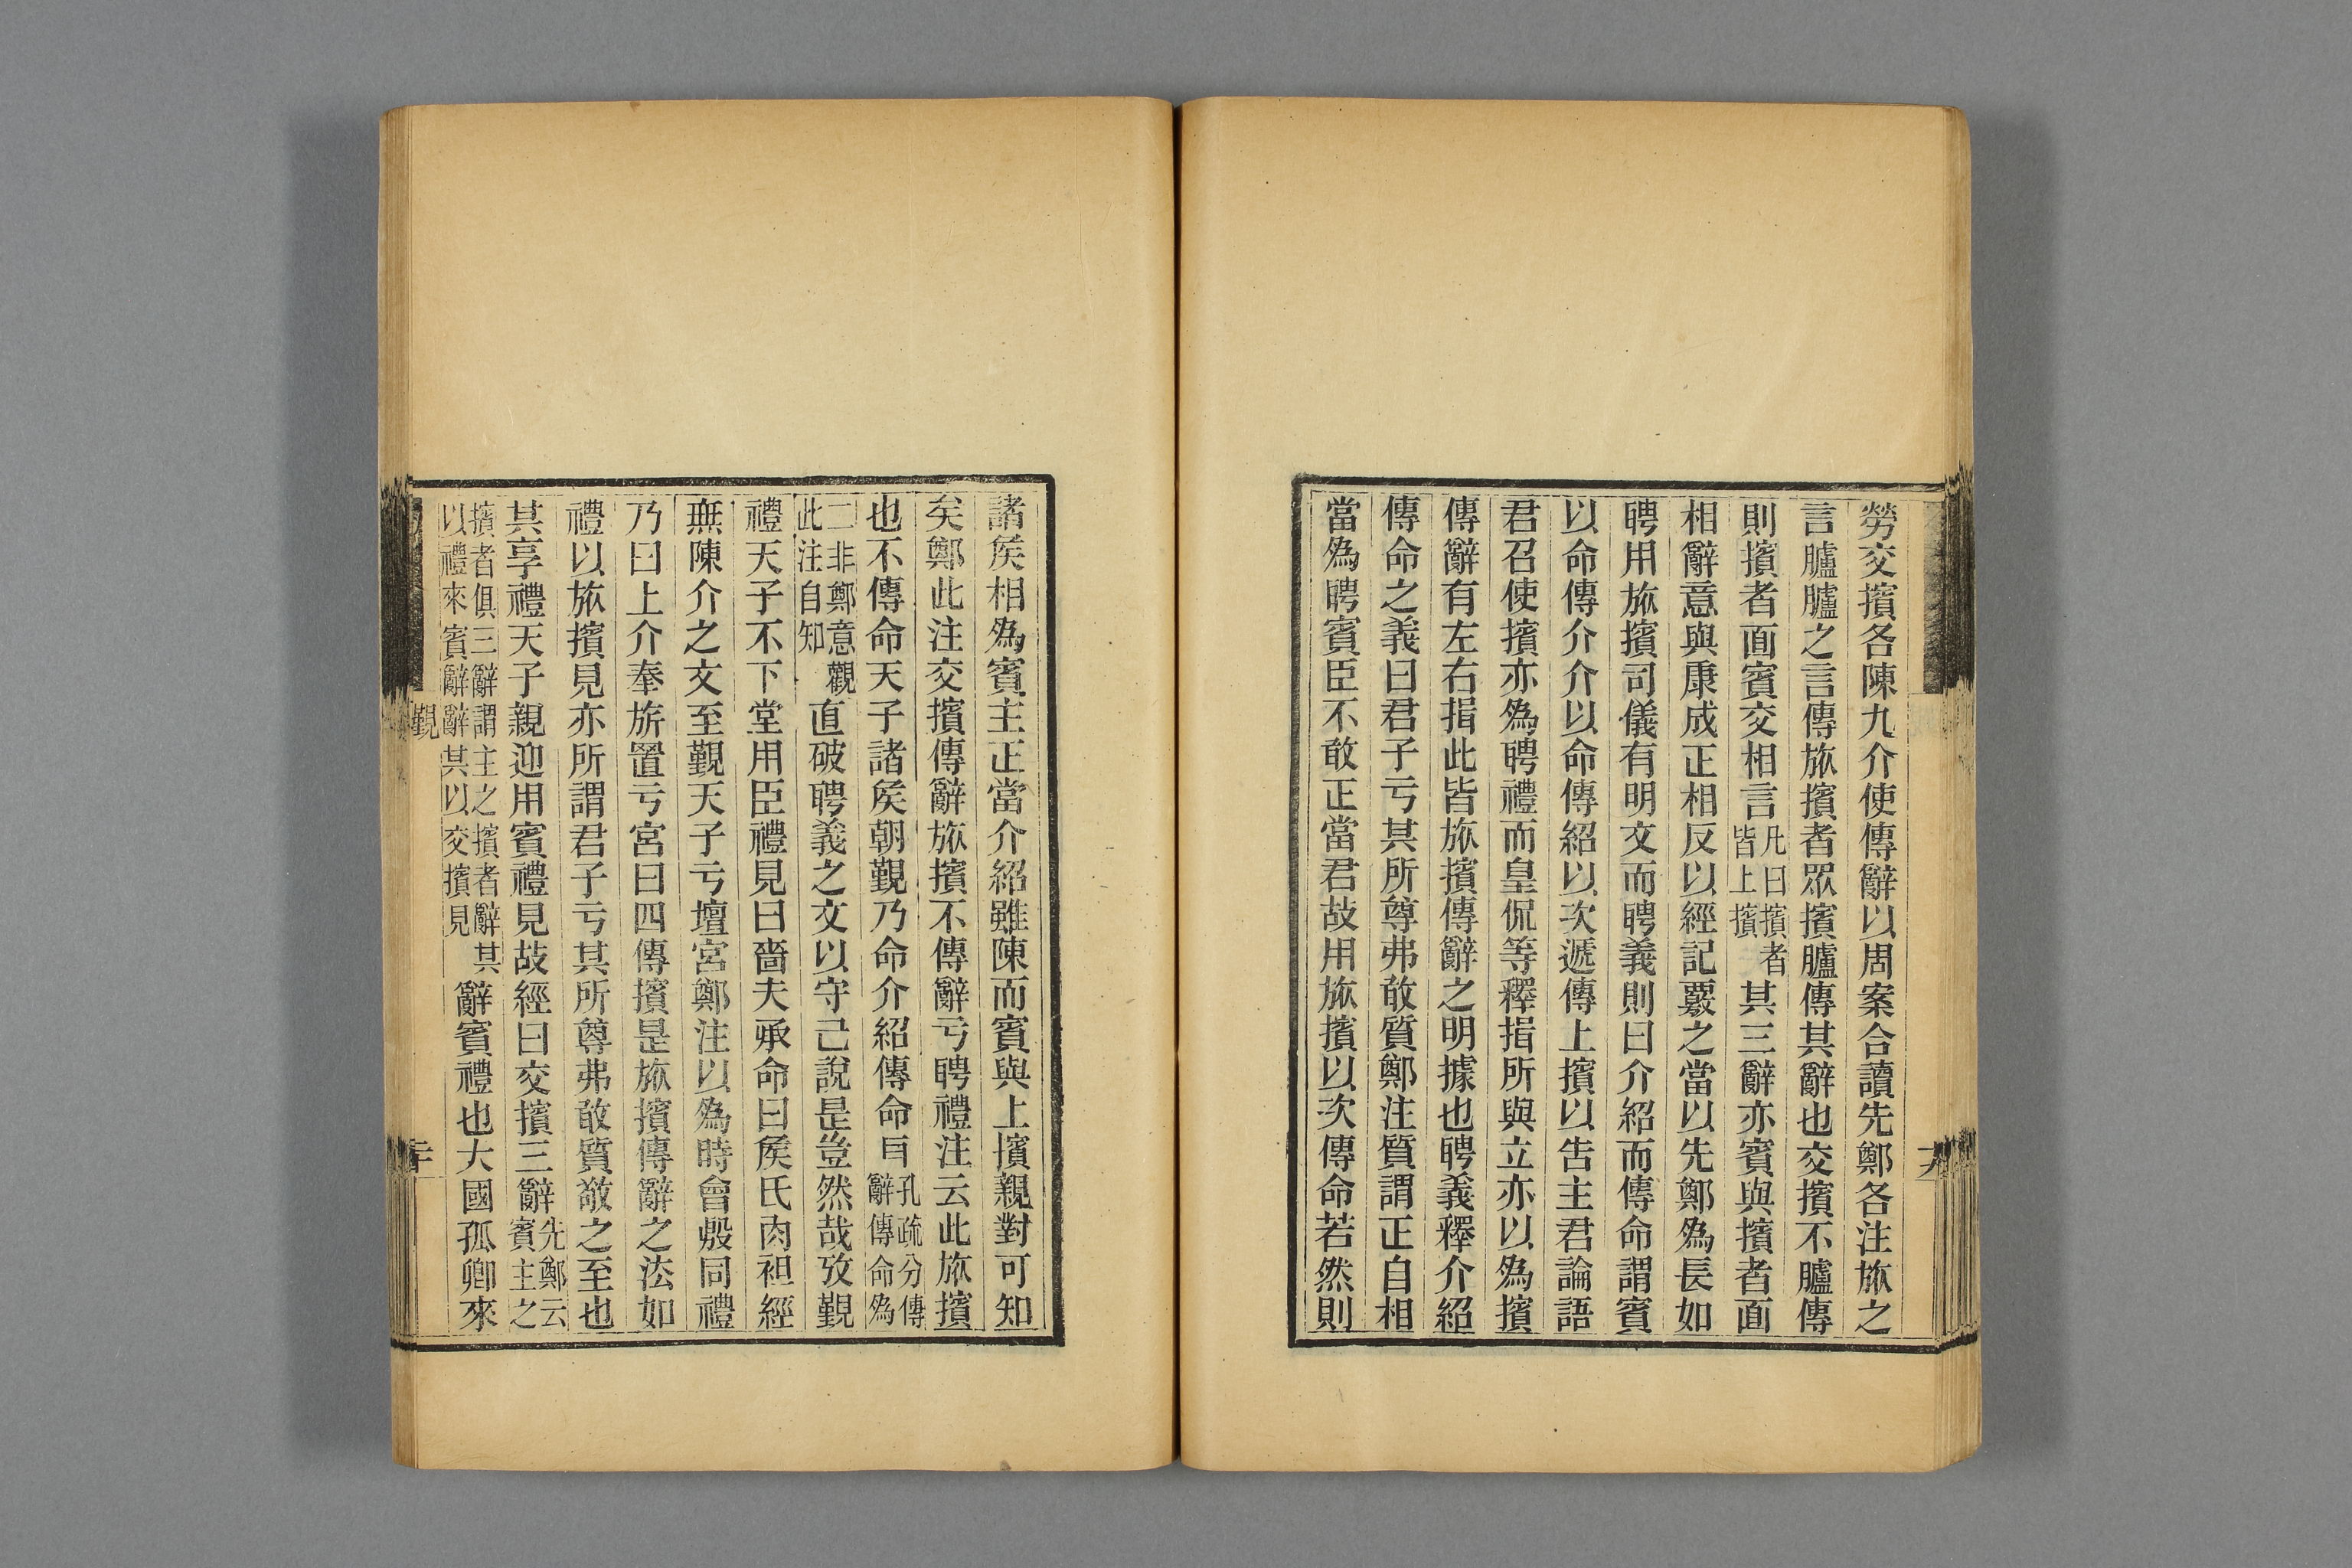 勞交擯各陳九介使傳辭以周案合讀先鄭各注旅之
言臚臚之言傳旅擯者眾擯臚傳其辭也交擯不臚傳
則擯者面賓交相言凡曰擯者皆上擯其三辭亦賓與擯者面
相辭意與康成正相反以經記覈之當以先鄭為長如
聘用旅擯司儀有明文而聘義則曰介紹而傳命謂賓
以命傳介介以命傳紹以次遞傳上擯以告主君論語
君召使擯亦為聘禮而皇侃等釋揖所與立亦以為擯
傳辭有左右揖此皆旅擯傳辭之明據也聘義釋介紹
傳命之義曰君子亏其所尊弗敢質鄭注質謂正自相
當為聘賓臣不敢正當君故用旅擯以次傳命若然則
十九
諸矦相為賓主正當介紹雖陳而賓與上擯親對可知
矣鄭此注交擯傳辭旅擯不傳辭亏聘禮注云此旅擯
也不傳命天子諸矦朝覲乃命介紹傳命㠯孔疏分傳辭傳命為
二非鄭意觀此注自知直破聘義之文以守己說是豈然哉攷覲
禮天子不下堂用臣禮見曰嗇夫承命曰矦氏肉袒經
無陳介之文至覲天子亏壇宮鄭注以為時會殷同禮
乃曰上介奉旂置亏宮曰四傳擯是旅擯傳辭之法如
禮以旅擯見亦所謂君子亏其所尊弗敢質敬之至也
其享禮天子親迎用賓禮見故經曰交擯三辭先鄭云賓主之
擯者俱三辭謂主之擯者辭其以禮來賓辭辭其以交擯見辭賓禮也大國孤卿來
覲
二十